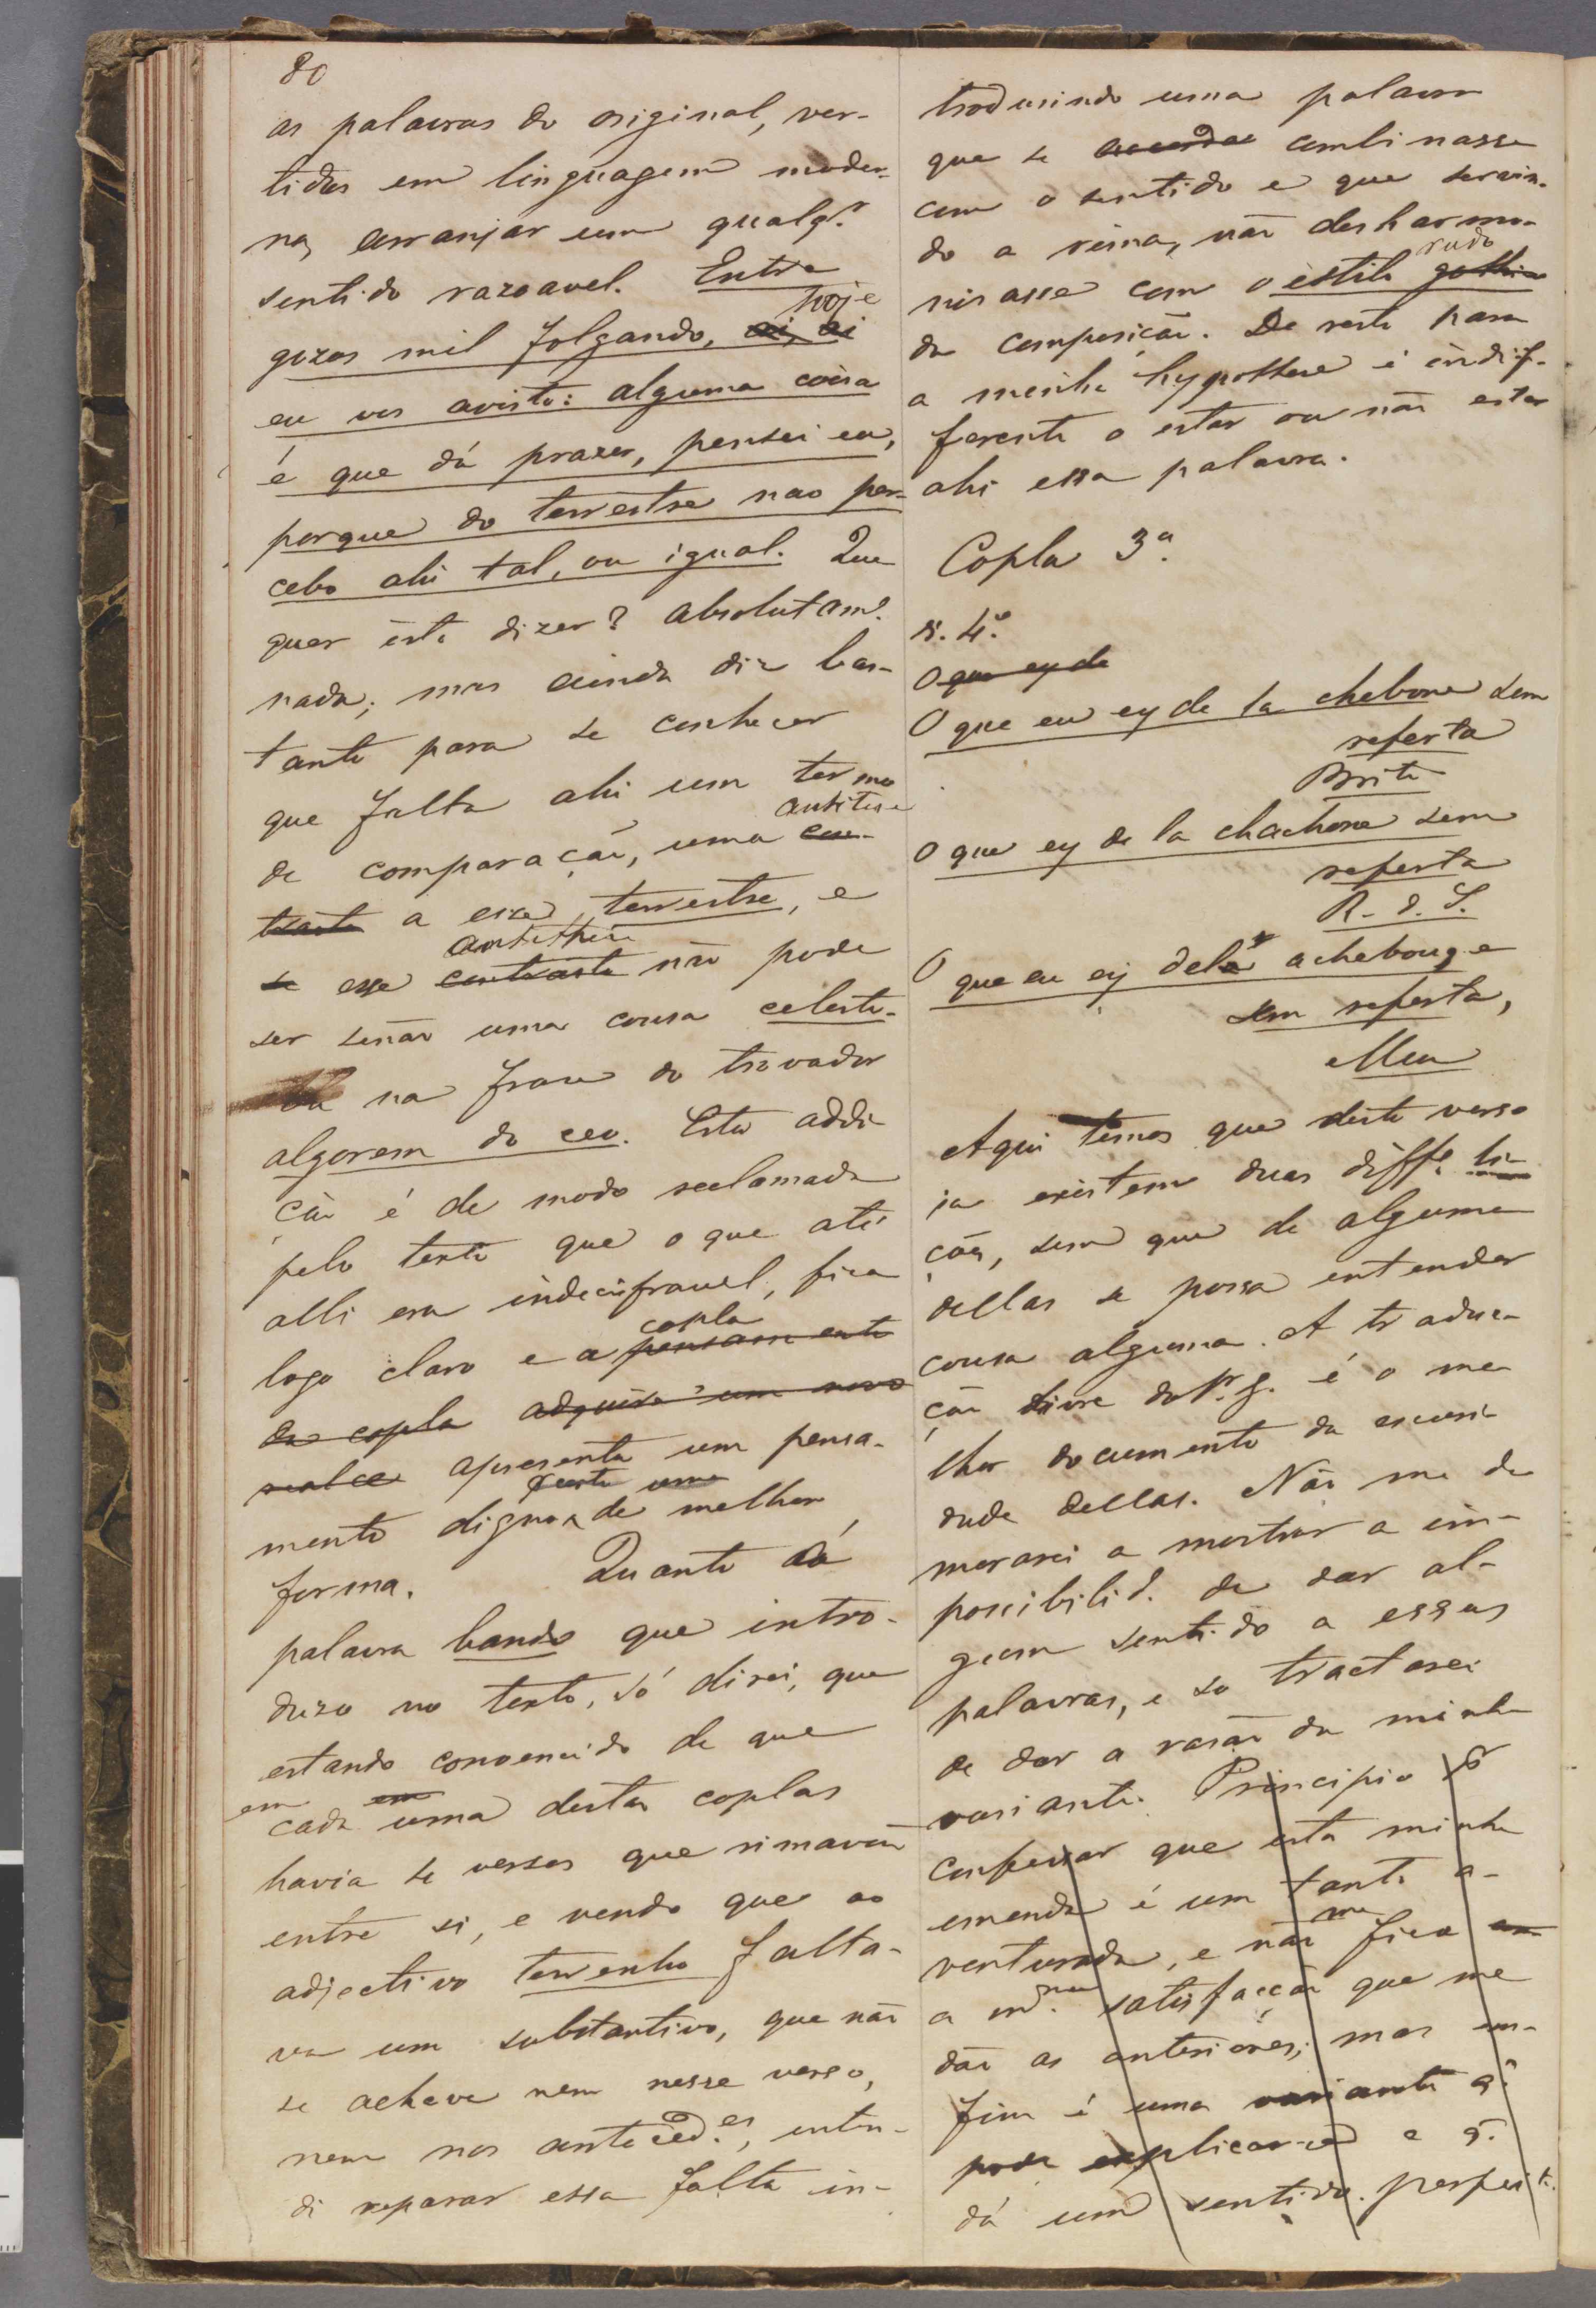 80
as palavras do original, ver-
tidas em linguagem moder-
na, arranjar um qualqr.
sentido razoavel. Entre
gozos mil folgando, ai, ai hoje
eu vos avisto: alguma coisa
é que dá prazer, pensei eu,
porque do terrestre nao per-
cebo ahi tal, ou igual. Que
quer isto dizer? Absolutame.
nada; mas ainda diz bas-
tante para se conhecer
que falta ahi um termo
de comparação, uma con- antitese
traste a esse terrestre, e
se esse contraste antithese não pode
ser senão uma cousa celeste.
na frase do trovador
algorem do ceo. Esta addi-
ção é de modo reclamada
pelo texto que o que até
alli era indecifravel, fica
logo claro e a pensamento copla
da copla adquire um novo
realce apresenta um pensa-
mento digno de melhor
forma. Quanto á
palavra bando que intro-
duzo no texto, só direi, que
estando convencido de que
em cada em uma destas coplas
havia se versos que rimavão
entre si, e vendo que ao
adjectivo terrenho falta-
va um substantivo, que não
se achava nem nesse verso,
nem nos anteced.es, enten-
di reparar essa falta in-
trodusindo uma palavra
que se combinasse
com o sentido e que servin-
do a rima, não desharmo-
nisasse com o estilo gothico rudo
da composição. De resto para
a minha hypothese é indif-
ferente o estar ou não estar
ahi essa palavra.
Copla 3.a
v. 4.o
O que ey de
O que eu ey de la chebone sem
referta
Brito
O que ey de la chachone sem
referta
R. d. S.
O que eu ey dela achebouge
sem referta,
Meu
Aqui temos que deste verso
ja existem duas diffe. li-
ções, sem que de alguma
dellas se possa entender
cousa alguma. A traduc-
ção livre do Sr. é o me-
lhor documento da escuri-
dade dellas. Não me de
morarei a mostrar a im-
possibilid. de dar al-
gum sentido a essas
palavras, e so tractarei
de dar a rasão da minha
variante. Principio pr
confessar que esta minha
emenda é um tanto a-
venturada, e não me fica
a m.ma satisfacção que me
dão as anteriores; mas em-
fim é uma variante q.
pode explicar-se e q.
dá um sentido perfeito.